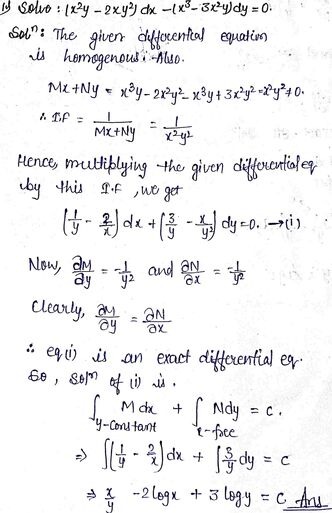 Solve: (x²y - 2xy²) dx - (x³ - 3x²y)dy = 0.
Solⁿ: The given differential equation
is homogenous. Also.
Mx+Ny = x³y - 2x²y² - x³y + 3x²y² = x²y² ≠ 0.
∴ I.F = 1/(Mx+Ny) = 1/(x²y²)
Hence, multiplying the given differential eq
by this I.F, we get
(1/y - 2/x) dx + (3/y - x/y²) dy = 0. → (i)
Now, ∂M/∂y = -1/y² and ∂N/∂x = -1/y²
Clearly, ∂M/∂y = ∂N/∂x
∴ eq (i) is an exact differential eq.
So, Solⁿ of (i) is.
∫ M dx + ∫ Ndy = c.
y-constant x-free
⇒ ∫(1/y - 2/x) dx + ∫ 3/y dy = c
⇒ x/y - 2logx + 3 logy = c Ans